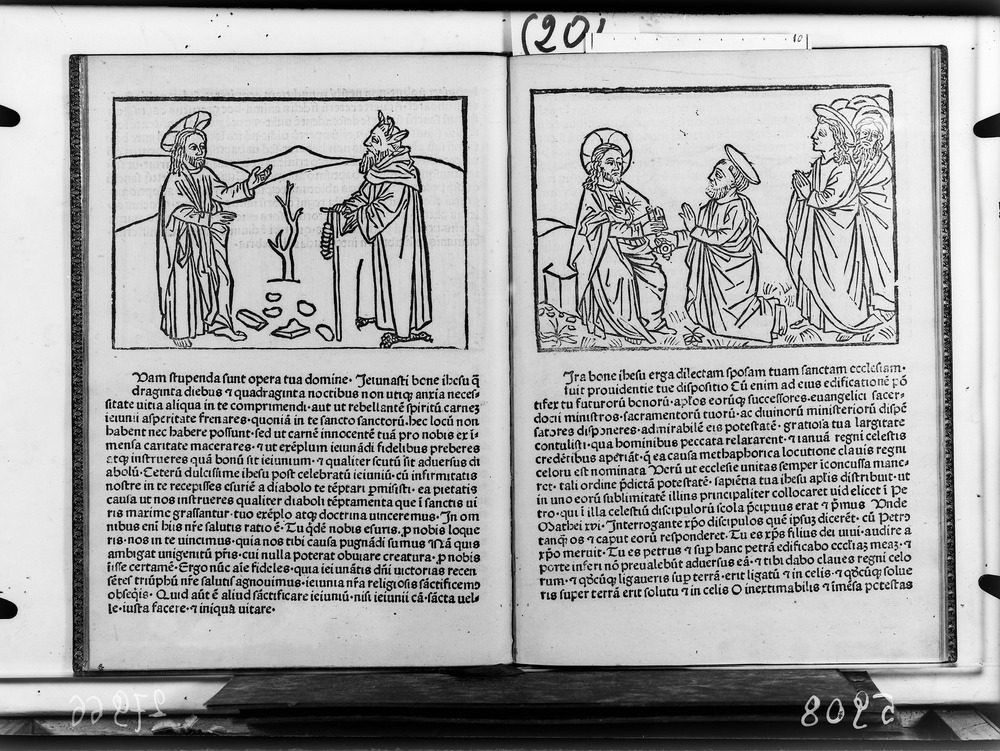 (20)
10
Uam stupenda sunt opera tua domine· Jeiunasti bone ihesu q̄
draginta diebus ⁊ quadraginta noctibus non utiq₃ anxia neces⸗
sitate uitia aliqua in te comprimendi· aut ut rebellantē spiritū carnes
ieiunii asperitate frenares· quoniā in te sancto sanctorū· hec locū non
habent nec habere possunt· sed ut carnē innocentē tuā pro nobis ex ī⸗
mensa caritate macerares· ⁊ ut exēplum ieiunādi fidelibus preberes
atq₃ instrueres quā bonū sit ieiunium· ⁊ qualiter scutū sit aduersus di
abolū· Ceterū dulcissime ihesu post celebratū ieiuniū· cū infirmitatis
nostre in te recepisses esuriē a diabolo te tēptari ꝑmisisti· ea pietatis
causa ut nos instrueres qualiter diaboli tēptamenta que ī sanctis ui
ris maxime grassantur· tuo exēplo atq₃ doctrina uinceremus· In om
nibus eni hiis nr̄e salutis ratio ē· Tu qdē nobis esuris· ꝓ nobis loque
ris· nos in te uincimus· quia nos tibi causa pugnādi sumus Nā quis
ambigat unigenitū p̄ris· cui nulla poterat obuiare creatura· ꝓ nobis
iisse certamē· Ergo nūc aīe fideles· quia ieiunātis dn̄i uictorias recen
sētes triūphū nr̄e salutis agnouimus· ieiunia nr̄a religiosis sāctificemꝰ
obseqīs· Quid aūt ē aliud sāctificare ieiuniū· nisi ieiunii cā· sācta uel⸗
le· iusta facere· ⁊ iniqua uitare·
Ira bone ihesu erga dilectam sposam tuam sanctam ecclesiam·
fuit prouidentie tue dispositio Cū enim ad eius edificationē pō
tifex tu futurorū bonorū· ap̄los eorūq₃ successores· euangelici sacer⸗
docii ministros· sacramentorū tuorū· ac diuinorū ministeriorū dispē
satores disponeres· admirabilē eis potestatē· gratiosa tua largitate
contulisti· qua hominibus peccata relaxarent· ⁊ ianuā regni celestis
credētibus aperiāt· q̄ ea causa methaphorica locutione clauis regni
celorū est nominata Uerū ut ecclesie unitas semper icōcussa mane⸗
ret· tali ordine p̄dictā potestatē· sapiētia tua ihesu ap̄lis distribuit· ut
in uno eorū sublimitatē illius principaliter collocaret uidelicet ī Pe
tro· qui ī illa celestiū discipulorū scola p̄cipuus erat ⁊ p̄mus Unde
Mathei xvi· Interrogante xp̄o discipulos quē ipsuꝫ dicerēt· cū Petrꝰ
tanq̄ os ⁊ caput eorū responderet· Tu es xp̄s filius dei uiui· audire a
xp̄o meruit· Tu es petrus ⁊ suꝑ hanc petrā edificabo eccl̄iaꝫ meaꝫ· ⁊
porte inferi nō preualebūt aduersus eā· ⁊ tibi dabo claues regni celo
rum· ⁊ qd̄cūq₃ ligaueris suꝑ terrā· erit ligatū ⁊ in celis· ⁊ qd̄cūq₃ solue
ris super terrā erit solutū ⁊ in celis O inextimabilis ⁊ imēsa potestas
27966
5908